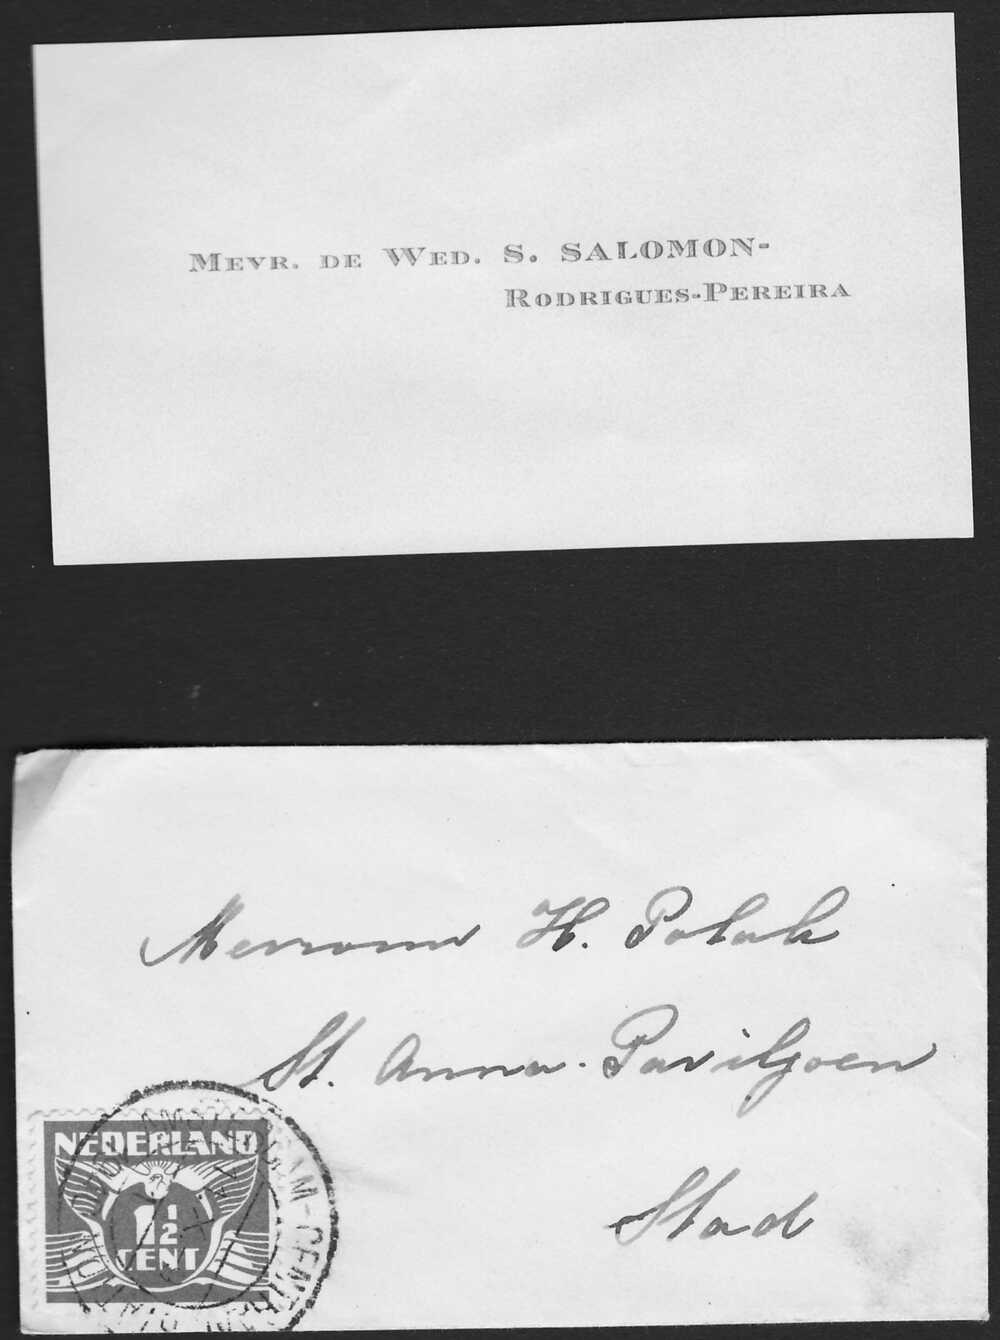 MEVR. DE WED. S. SALOMON-
RODRIGUES-PEREIRA
Mevrouw H. Polak
St. Anna-Paviljoen
Stad
NEDERLAND
1½
CENT
AMSTERDAM-CENTRAAL STATION